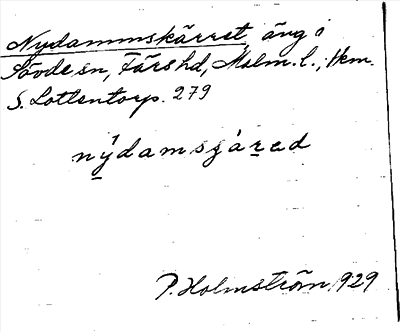 Nydammskärret, äng i
Sövde sn, Färs hd, Malm. l.; Hem.
S. Lottentorp. 279
nýdamsjáred
P. Holmström, 1929